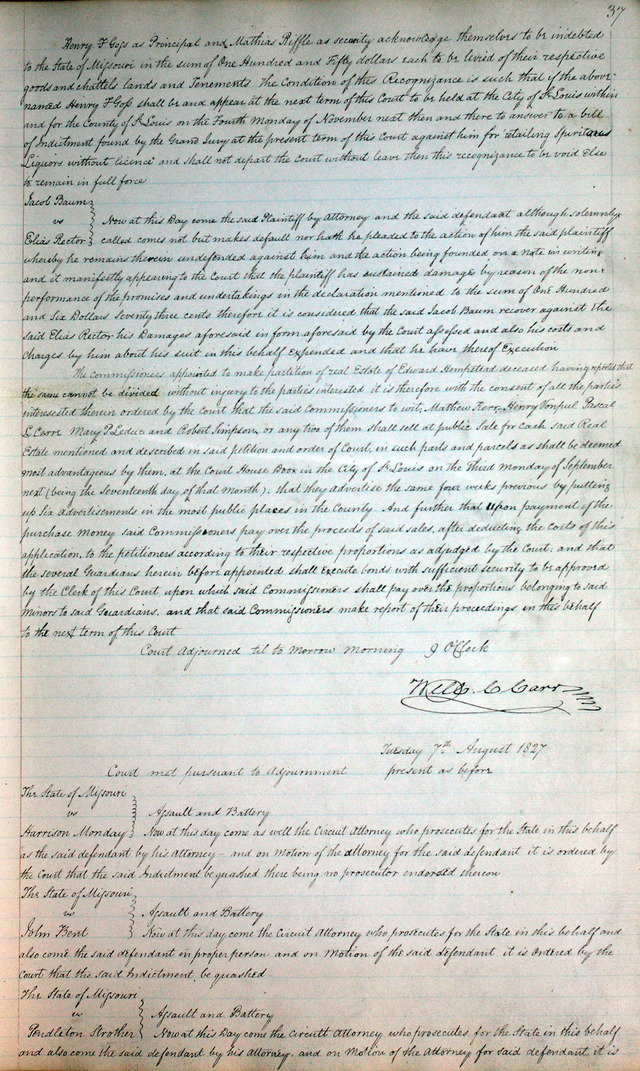 37
Henry F Goss as Principal and Mathias Riffle as security acknowledge themselves to be indebted
to the State of Missouri in the sum of One Hundred and Fifty dollars each to be levied of their respective
goods and chattels lands and Tenements. The Condition of this Recognizance is such that if the above
named Henry F Goss shall be and appear at the next term of this Court to be held at the City of St Louis within
and for the County of St Louis on the Fourth Monday of November next then and there to answer to a bill
of Indictment found by the Grand Jury at the present term of this Court against him for retailing Spirituous
Liquors without licence and shall not depart the Court without leave then this recognizance to be void Else
to remain in full force
Jacob Baum
vs
Now at this Day come the said Plaintiff by Attorney and the said defendant although solemnly
Elias Rector called comes not but makes default nor hath he pleaded to the action of him the said plaintiff
whereby he remains therein undefended against him and the action being founded on a Note in writing
and it manifestly appearing to the Court that the plaintiff has sustained damages by reason of the non
performance of the promises and undertakings in the declaration mentioned to the sum of One Hundred
and Six Dollars Seventy three cents therefore it is considered that the said Jacob Baum recover against the
said Elias Rector his Damages aforesaid in form aforesaid by the Court assessed and also his costs and
Charges by him about his suit in this behalf Expended and that he have thereof Execution
The Commissioners appointed to make partition of real Estate of Edward Hempstead deceased having reported that
the same cannot be divided without injury to the parties interested it is therefore with the consent of all the parties
interested therein ordered by the Court that the said Commissioners to wit, Mathew Kerr, Henry Vonpul Pascal
L Carr Mary P Leduc and Robert Simpson, or any two of them shall sell at public Sale for Cash said Real
Estate mentioned and described in said petition and order of Court, in such parts and parcels as shall be deemed
most advantageous by them, at the Court House Door in the City of St Louis on the third Monday of September
next (being the Seventeenth day of that month); that they advertise the same four weeks previous by putting
up Six advertisements in the most public places in the County. And further that Upon payment of the
purchase money said Commissioners pay over the proceeds of said sales, after deducting the Costs of this
application, to the petitioners according to their respective proportions as adjudged by the Court; and that
the several Guardians herein before appointed shall Execute bonds with sufficient security to be approved
by the Clerk of this Court upon which said Commissioners shall pay over the proportions belonging to said
Minors to said Guardians, and that said Commissioners make report of their proceedings in this behalf
to the next term of this Court
Court Adjourned til to Morrow morning 9 OClock
Will. C Carr
Tuesday 7th August 1827
Court met pursuant to Adjournment present as before
The State of Missouri
vs Assault and Battery
Harrison Monday Now at this day come as well the Circuit Attorney who prosecutes for the State in this behalf
as the said defendant by his Attorney – and on Motion of the attorney for the said defendant it is ordered by
the Court that the said Indictment be quashed there being no prosecutor endorsed thereon
The State of Missouri
vs Assault and Battery
John Bent Now at this day come the Circuit Attorney who prosecutes for the State in this behalf and
also come the said defendant in proper person and on Motion of the said defendant it is Ordered by the
Court that the said Indictment be quashed
The State of Missouri
vs Assault and Battery
Pendleton Strother Now at this Day come the Circuit Attorney who prosecutes for the State in this behalf
and also come the said defendant by his Attorney. and on Motion of the Attorney for said defendant it is